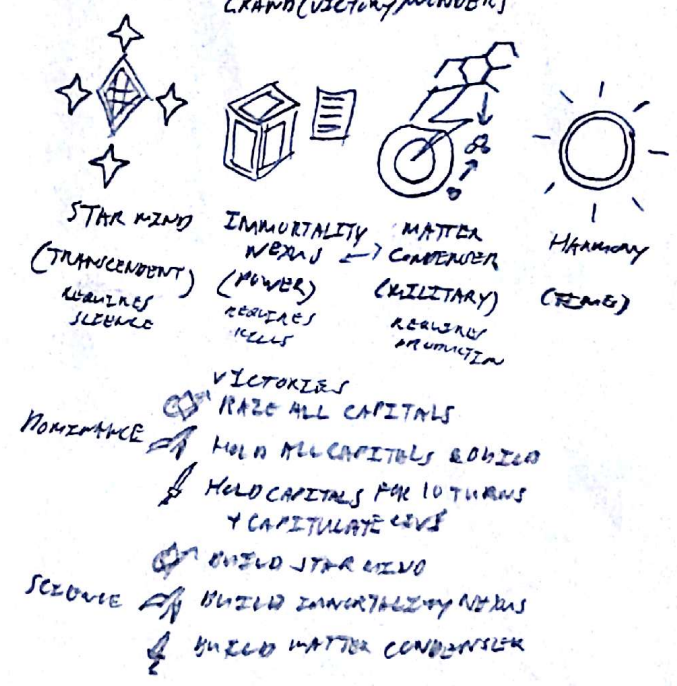 GRAND (VICTORY) WONDERS
STAR MIND
(TRANSCENDENT)
REQUIRES
SCIENCE
IMMORTALITY
NEXUS
(POWER)
REQUIRES
KILLS
MATTER
CONDENSER
(MILITARY)
REQUIRES
PRODUCTION
HARMONY
VICTORIES
RAZE ALL CAPITALS
DOMINANCE
HOLD ALL CAPITALS
HOLD CAPITALS FOR 10 TURNS
+ CAPITULATE CIVS
BUILD STAR MIND
SCIENCE
BUILD IMMORTALITY NEXUS
BUILD MATTER CONDENSER